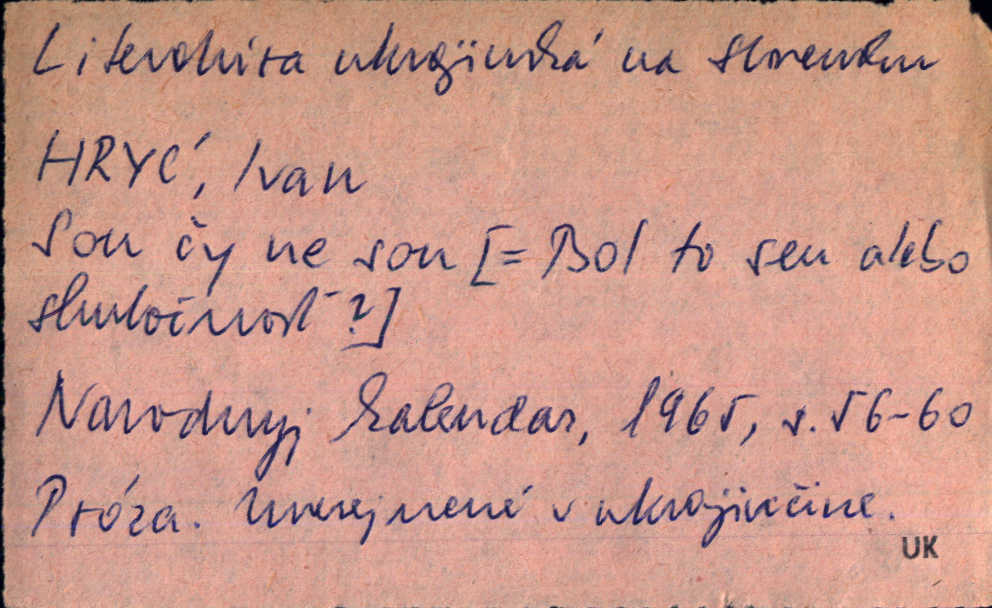 Literatúra ukrajinská na Slovensku
HRYC', Ivan
Son čy ne son [= Bol to sen alebo
skutočnosť?]
Narodnyj kalendar, 1965, s. 56-60
Próza. Uverejnené v ukrajinčine.
UK